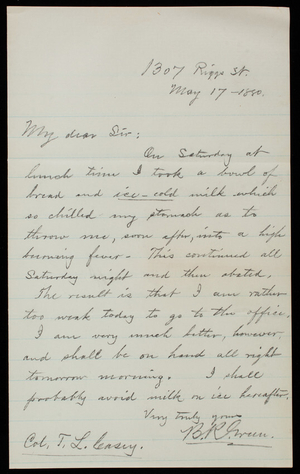 1307 Riggs St.
May 17-1880.
My dear Sir:
On Saturday at
lunch time I took a bowl of
bread and ice-cold milk which
so chilled my stomach as to
throw me, soon after, into a high
burning fever. This continued all
Saturday night and then abated.
The result is that I am rather
too weak today to go to the office.
I am very much better, however,
and shall be on hand all right
tomorrow morning. I shall
probably avoid milk on ice hereafter.
Very truly yours
B. R. Green.
Col. T. L. Casey.